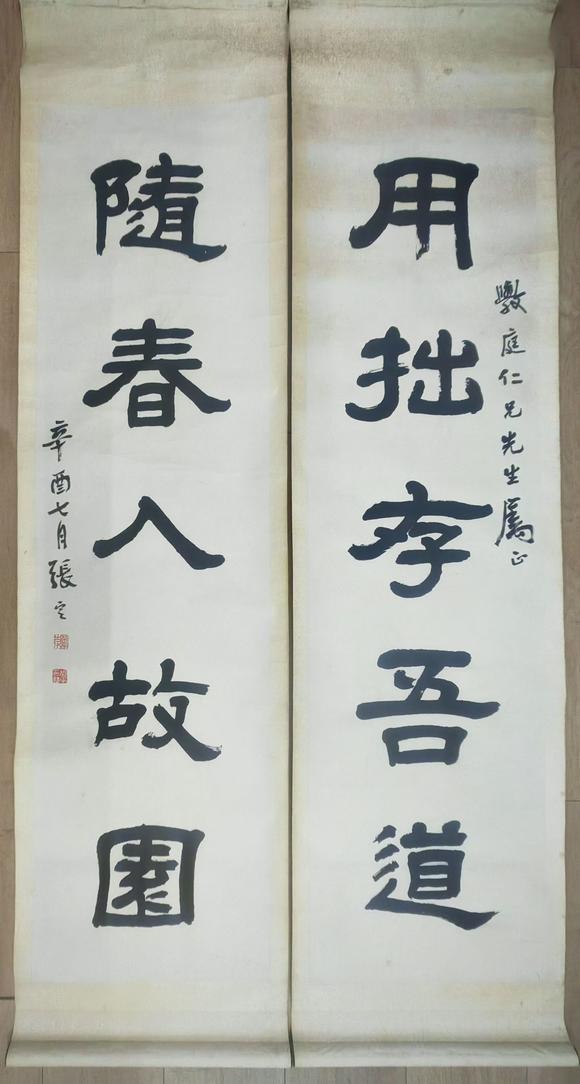 用拙存吾道
敩庭仁兄先生属正
隨春入故園
辛酉七月張定